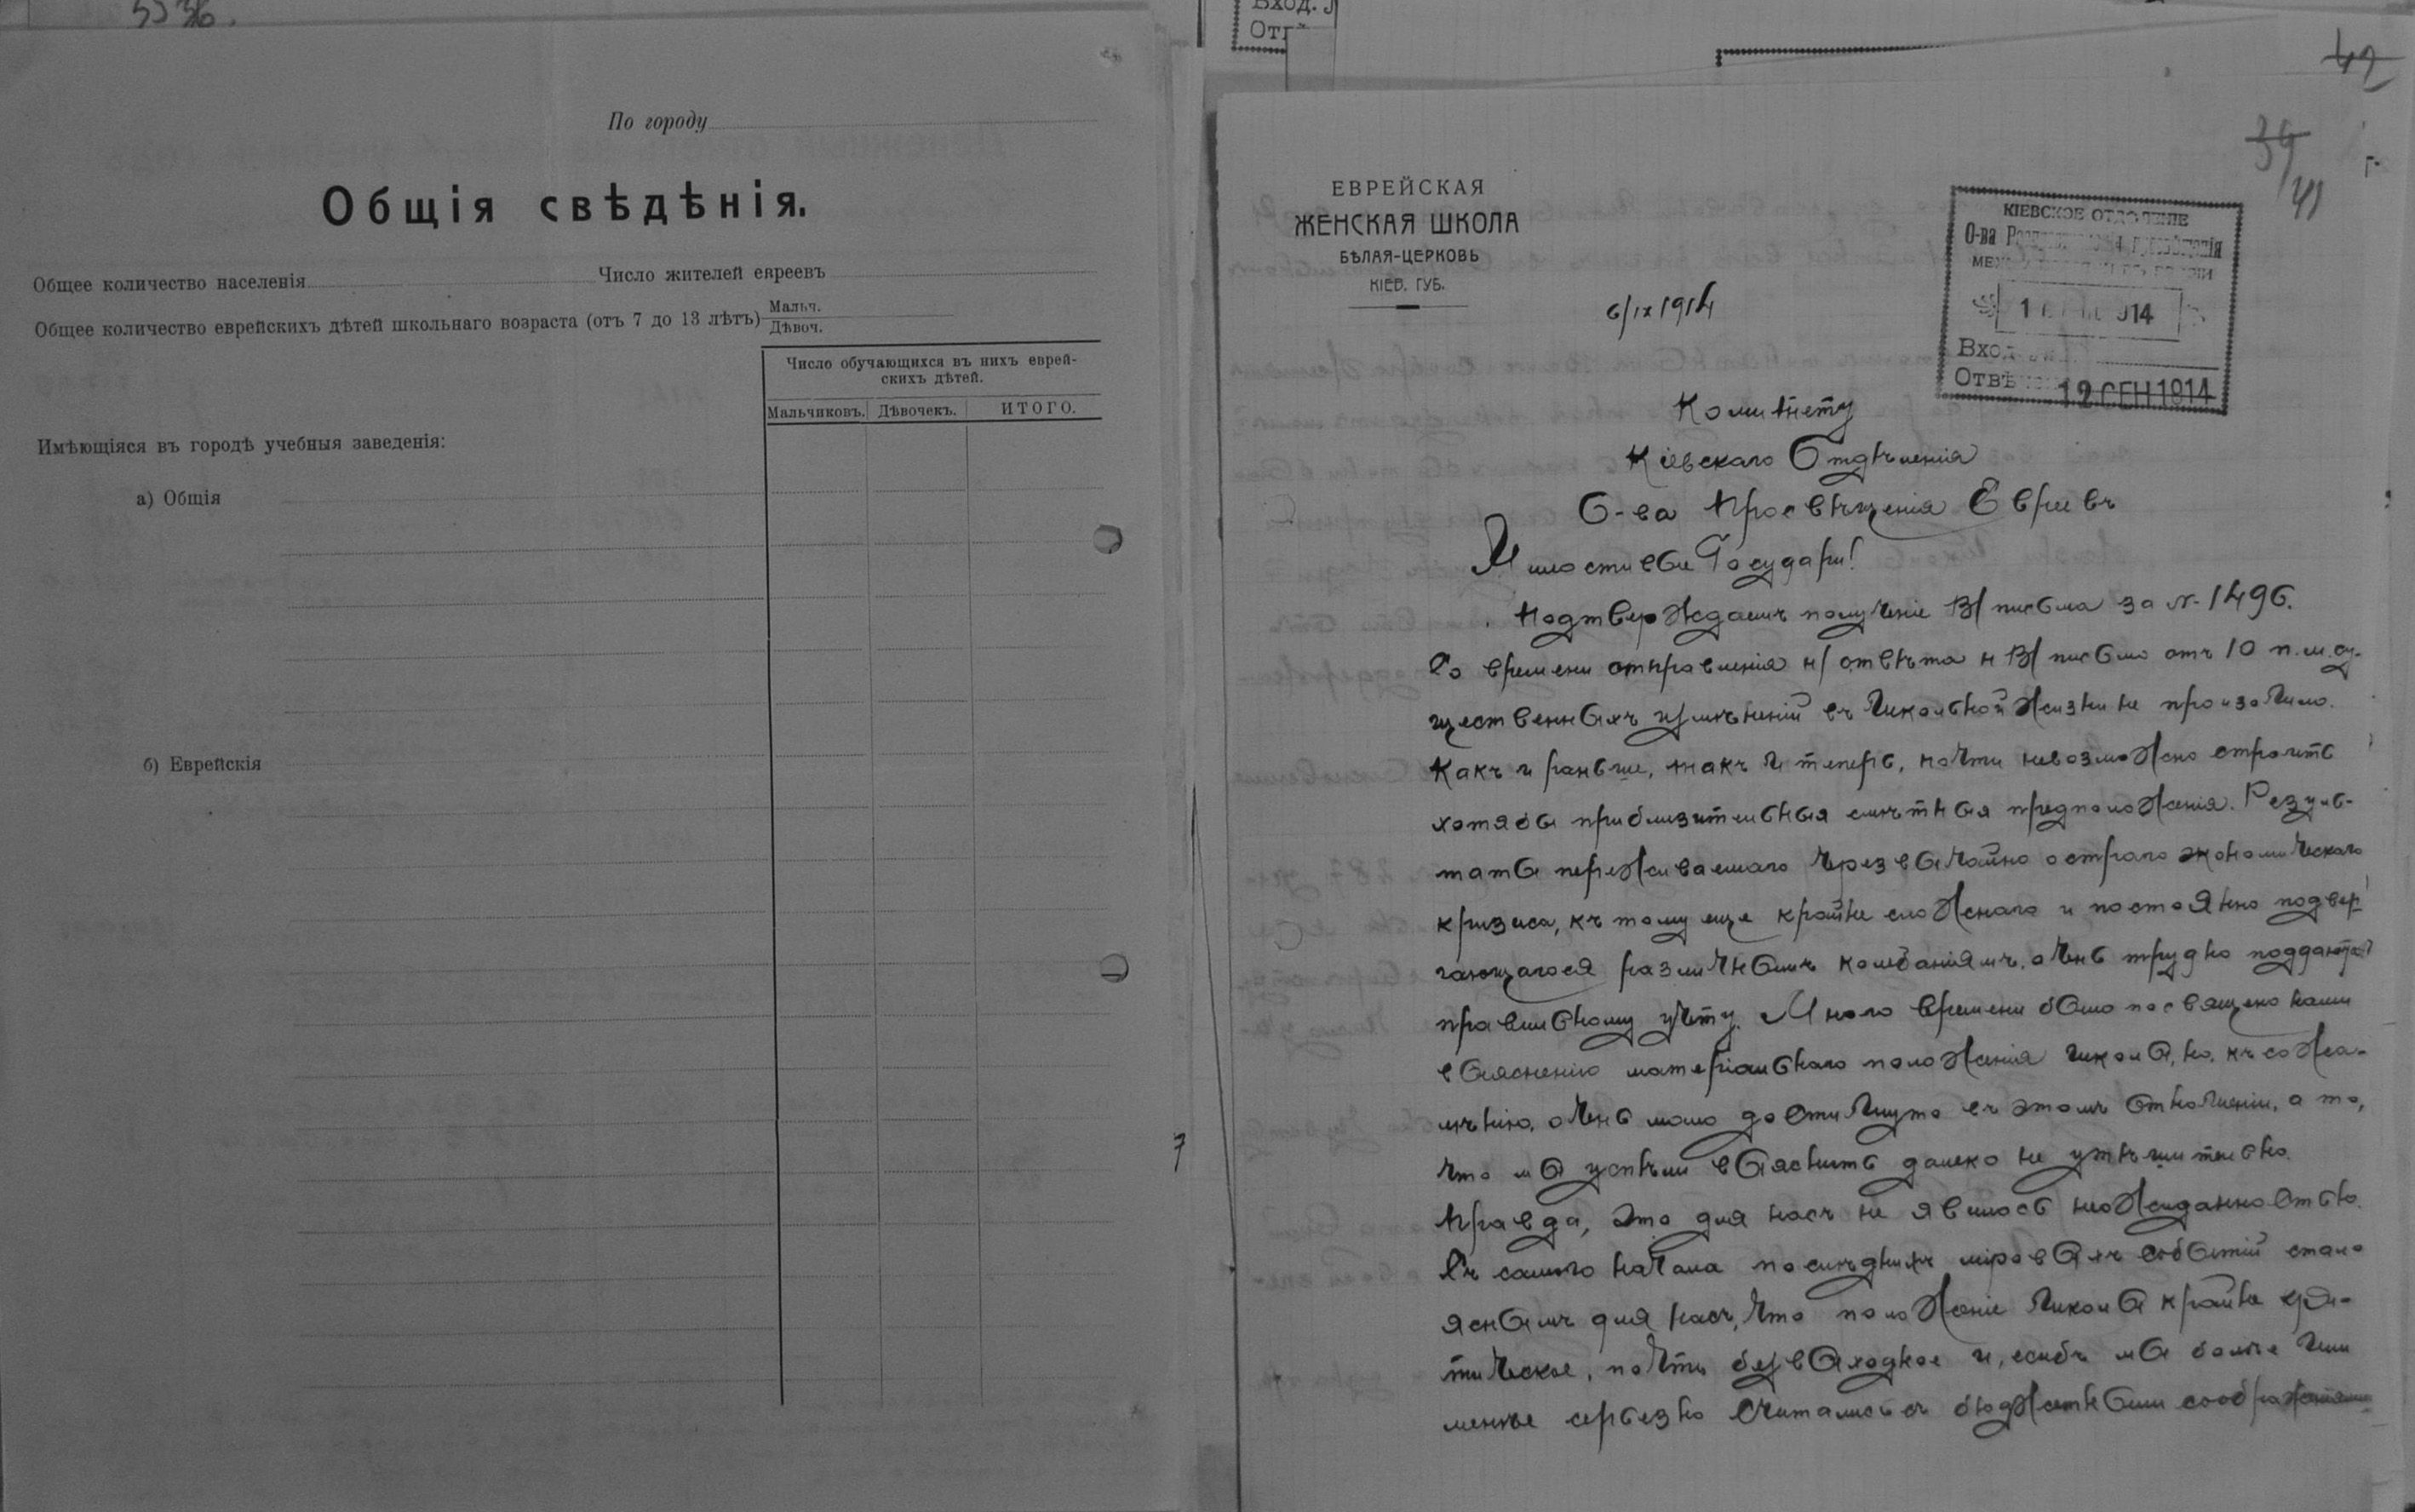 5536.
По городу
Общія свѣдѣнія.
Общее количество населенія Число жителей евреевъ
Общее количество еврейскихъ дѣтей школьнаго возраста (отъ 7 до 13 лѣтъ) Мальч.
Дѣвоч.
Число обучающихся въ нихъ еврей-
скихъ дѣтей.
Мальчиковъ. Дѣвочекъ. ИТОГО.
Имѣющіяся въ городѣ учебныя заведенія:
а) Общія
б) Еврейскія
Вход.
42
39
41
ЕВРЕЙСКАЯ
ЖЕНСКАЯ ШКОЛА
БѢЛАЯ-ЦЕРКОВЬ
КІЕВ. ГУБ.
КІЕВСКОЕ ОТДѢЛЕНІЕ
О-ва
1914
Вход
Отвѣ
12 СЕН 1914
6/IX 1914
Комитету
Кіевскаго Отдѣленія
О-ва Просвѣщенія Евреевъ
Милостивые Государи!
Подтверждаемъ полученіе В/ письма за N- 1496.
Со времени отправленія н/ отвѣта н В/ письмо отъ 10 п.м. су-
щественныхъ измѣненій въ школьной жизни не произошло.
Какъ и раньше, такъ и теперь, почти невозможно строить
хотя бы приблизительныя смѣтныя предположенія. Резуль-
таты переживаемаго черезвычайно остраго экономическаго
кризиса, къ тому еще крайне сложнаго и постоянно подвер
гающагося различнымъ колебаніямъ, очень трудно поддаются
правильному учету. Много времени было посвящено нами
выясненію матеріальнаго положенія школы, но, къ сожа-
лѣнію, очень мало достигнуто въ этомъ отношеніи, а то,
что мы успѣли выяснить далеко не утѣшительно.
Правда, это для насъ не явилось неожиданностью.
Съ самого начала послѣднихъ міровыхъ событій стало
яснымъ для насъ, что положеніе школы крайне кри-
тическое, почти безвыходное и, еслибъ мы болѣе или
менѣе серьезно считались съ бюджетными соображеніями